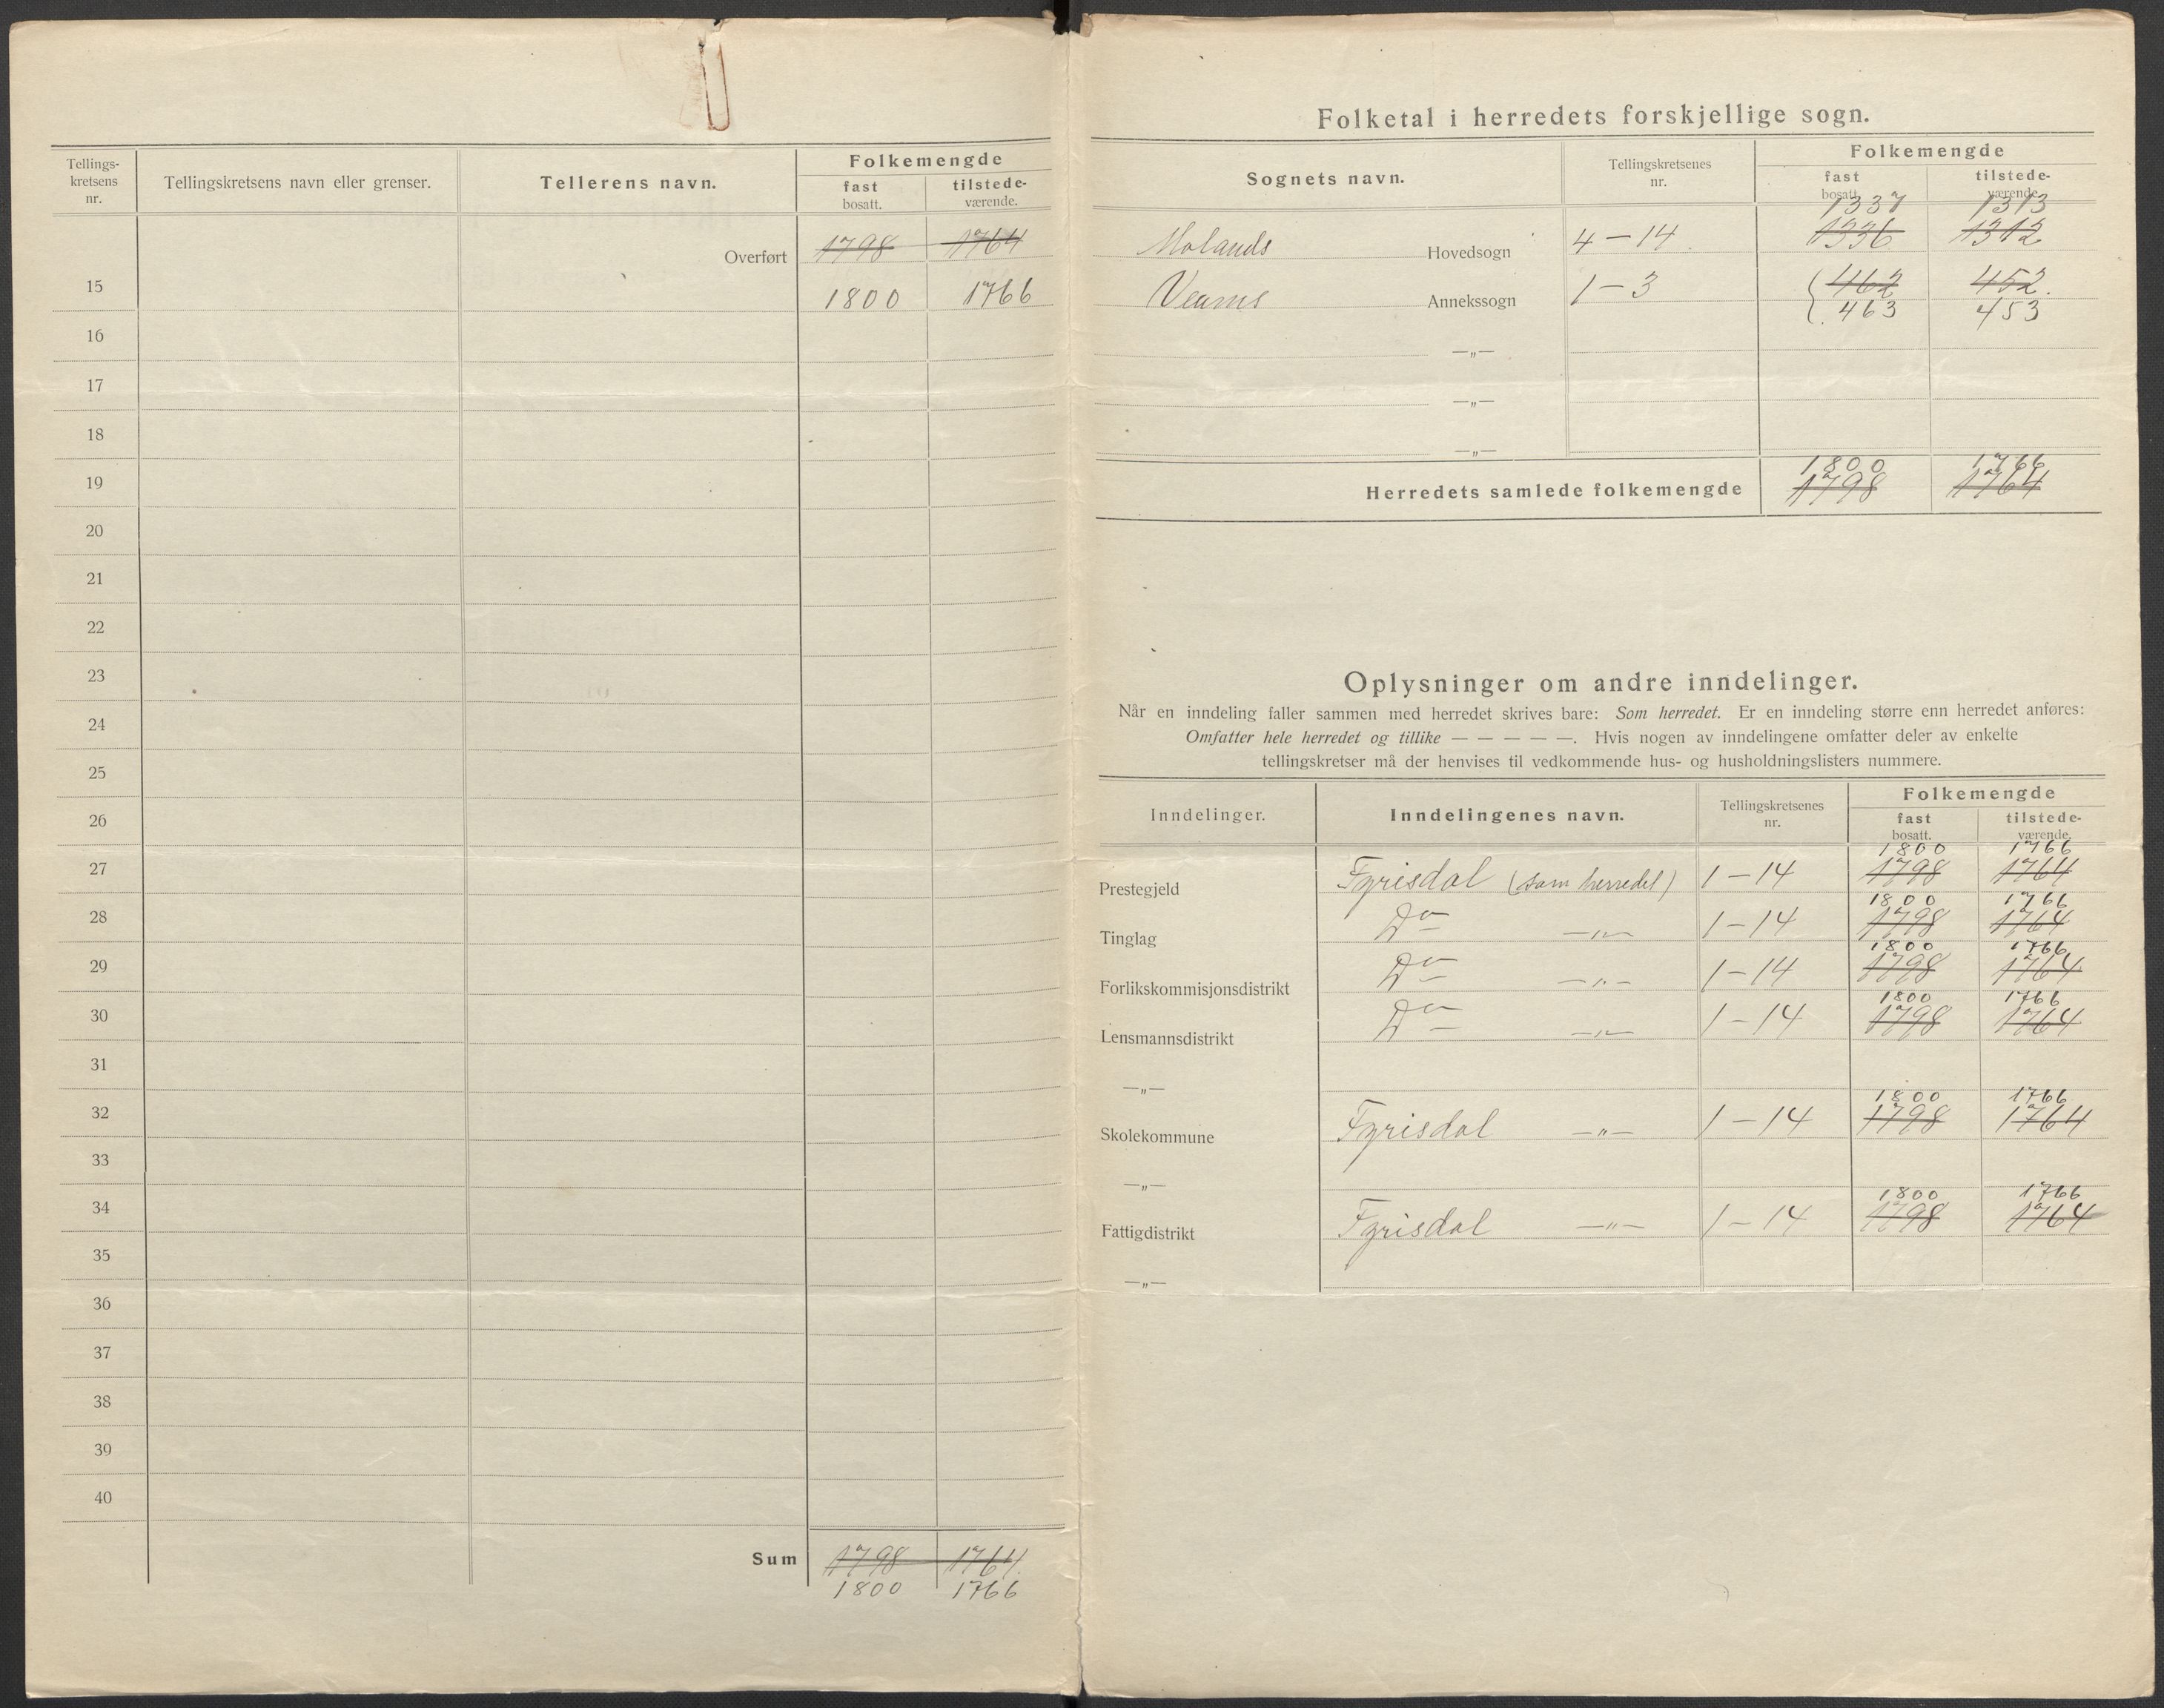 Tellings-
kretsens
nr.
Tellingskretsens navn eller grenser.
Tellerens navn.
Folkemengde
fast
bosatt.
tilstede-
værende.
Overført 1798 1764
15 1800 1766
16
17
18
19
20
21
22
23
24
25
26
27
28
29
30
31
32
33
34
35
36
37
38
39
40
Sum 1798 1764
1800 1766
Folketal i herredets forskjellige sogn.
Sognets navn.
Tellingskretsenes
nr.
Folkemengde
fast
bosatt.
tilstede-
værende.
1337 1313
Molands Hovedsogn 4-14 1336 1312
Veums Annekssogn 1-3 462 452
463 453
—„—
—„—
—„—
1800 1766
Herredets samlede folkemengde 1798 1764
Oplysninger om andre inndelinger.
Når en inndeling faller sammen med herredet skrives bare: Som herredet. Er en inndeling større enn herredet anføres:
Omfatter hele herredet og tillike — — — — —. Hvis nogen av inndelingene omfatter deler av enkelte
tellingskretser må der henvises til vedkommende hus- og husholdningslisters nummere.
Inndelinger.
Inndelingenes navn.
Tellingskretsenes
nr.
Folkemengde
fast
bosatt.
tilstede-
værende.
1800 1766
Prestegjeld Fyrisdal (som herredet) 1-14 1798 1764
1800 1766
Tinglag Do —„— 1-14 1798 1764
1800 1766
Forlikskommisjonsdistrikt Do —„— 1-14 1798 1764
1800 1766
Lensmannsdistrikt Do —„— 1-14 1798 1764
—„—
1800 1766
Skolekommune Fyrisdal —„— 1-14 1798 1764
—„—
1800 1766
Fattigdistrikt Fyrisdal —„— 1-14 1798 1764
—„—